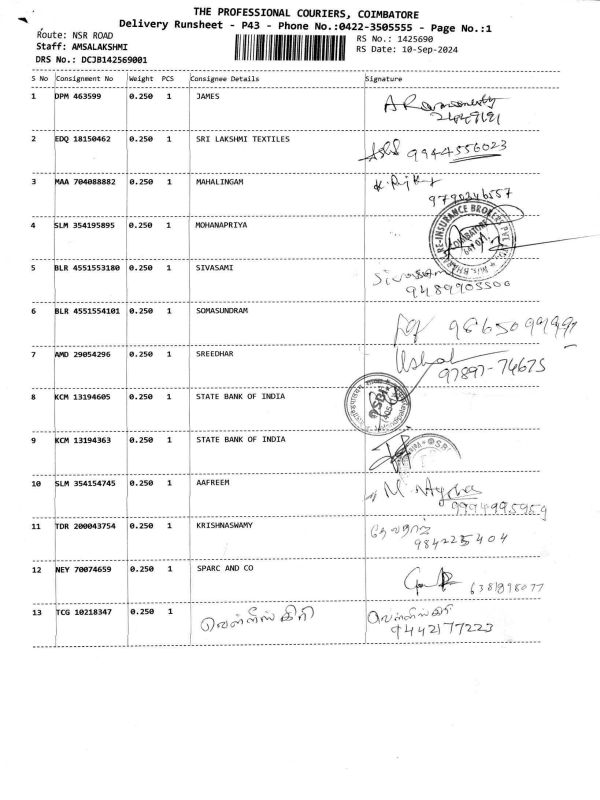 THE PROFESSIONAL COURIERS, COIMBATORE
Delivery Runsheet - P43 - Phone No.:0422-3505555 - Page No.:1
Route: NSR ROAD
RS No.: 1425690
Staff: AMSALAKSHMI
RS Date: 10-Sep-2024
DRS No.: DCJB142569001
S No Consignment No Weight PCS Consignee Details Signature
1 DPM 463599 0.250 1 JAMES
2 EDQ 18150462 0.250 1 SRI LAKSHMI TEXTILES 9944556023
3 MAA 704088882 0.250 1 MAHALINGAM
9790246557
4 SLM 354195895 0.250 1 MOHANAPRIYA
5 BLR 4551553180 0.250 1 SIVASAMI
9489905500
6 BLR 4551554101 0.250 1 SOMASUNDRAM
7 AMD 29054296 0.250 1 SREEDHAR
97897-74675
8 KCM 13194605 0.250 1 STATE BANK OF INDIA
9 KCM 13194363 0.250 1 STATE BANK OF INDIA
10 SLM 354154745 0.250 1 AAFREEM
9994995959
11 TDR 200043754 0.250 1 KRISHNASWAMY
9842235404
12 NEY 70074659 0.250 1 SPARC AND CO
6381898077
13 TCG 10218347 0.250 1 வெள்ளிஸ்கிரி வெள்ளிஸ்கிரி
9442177223